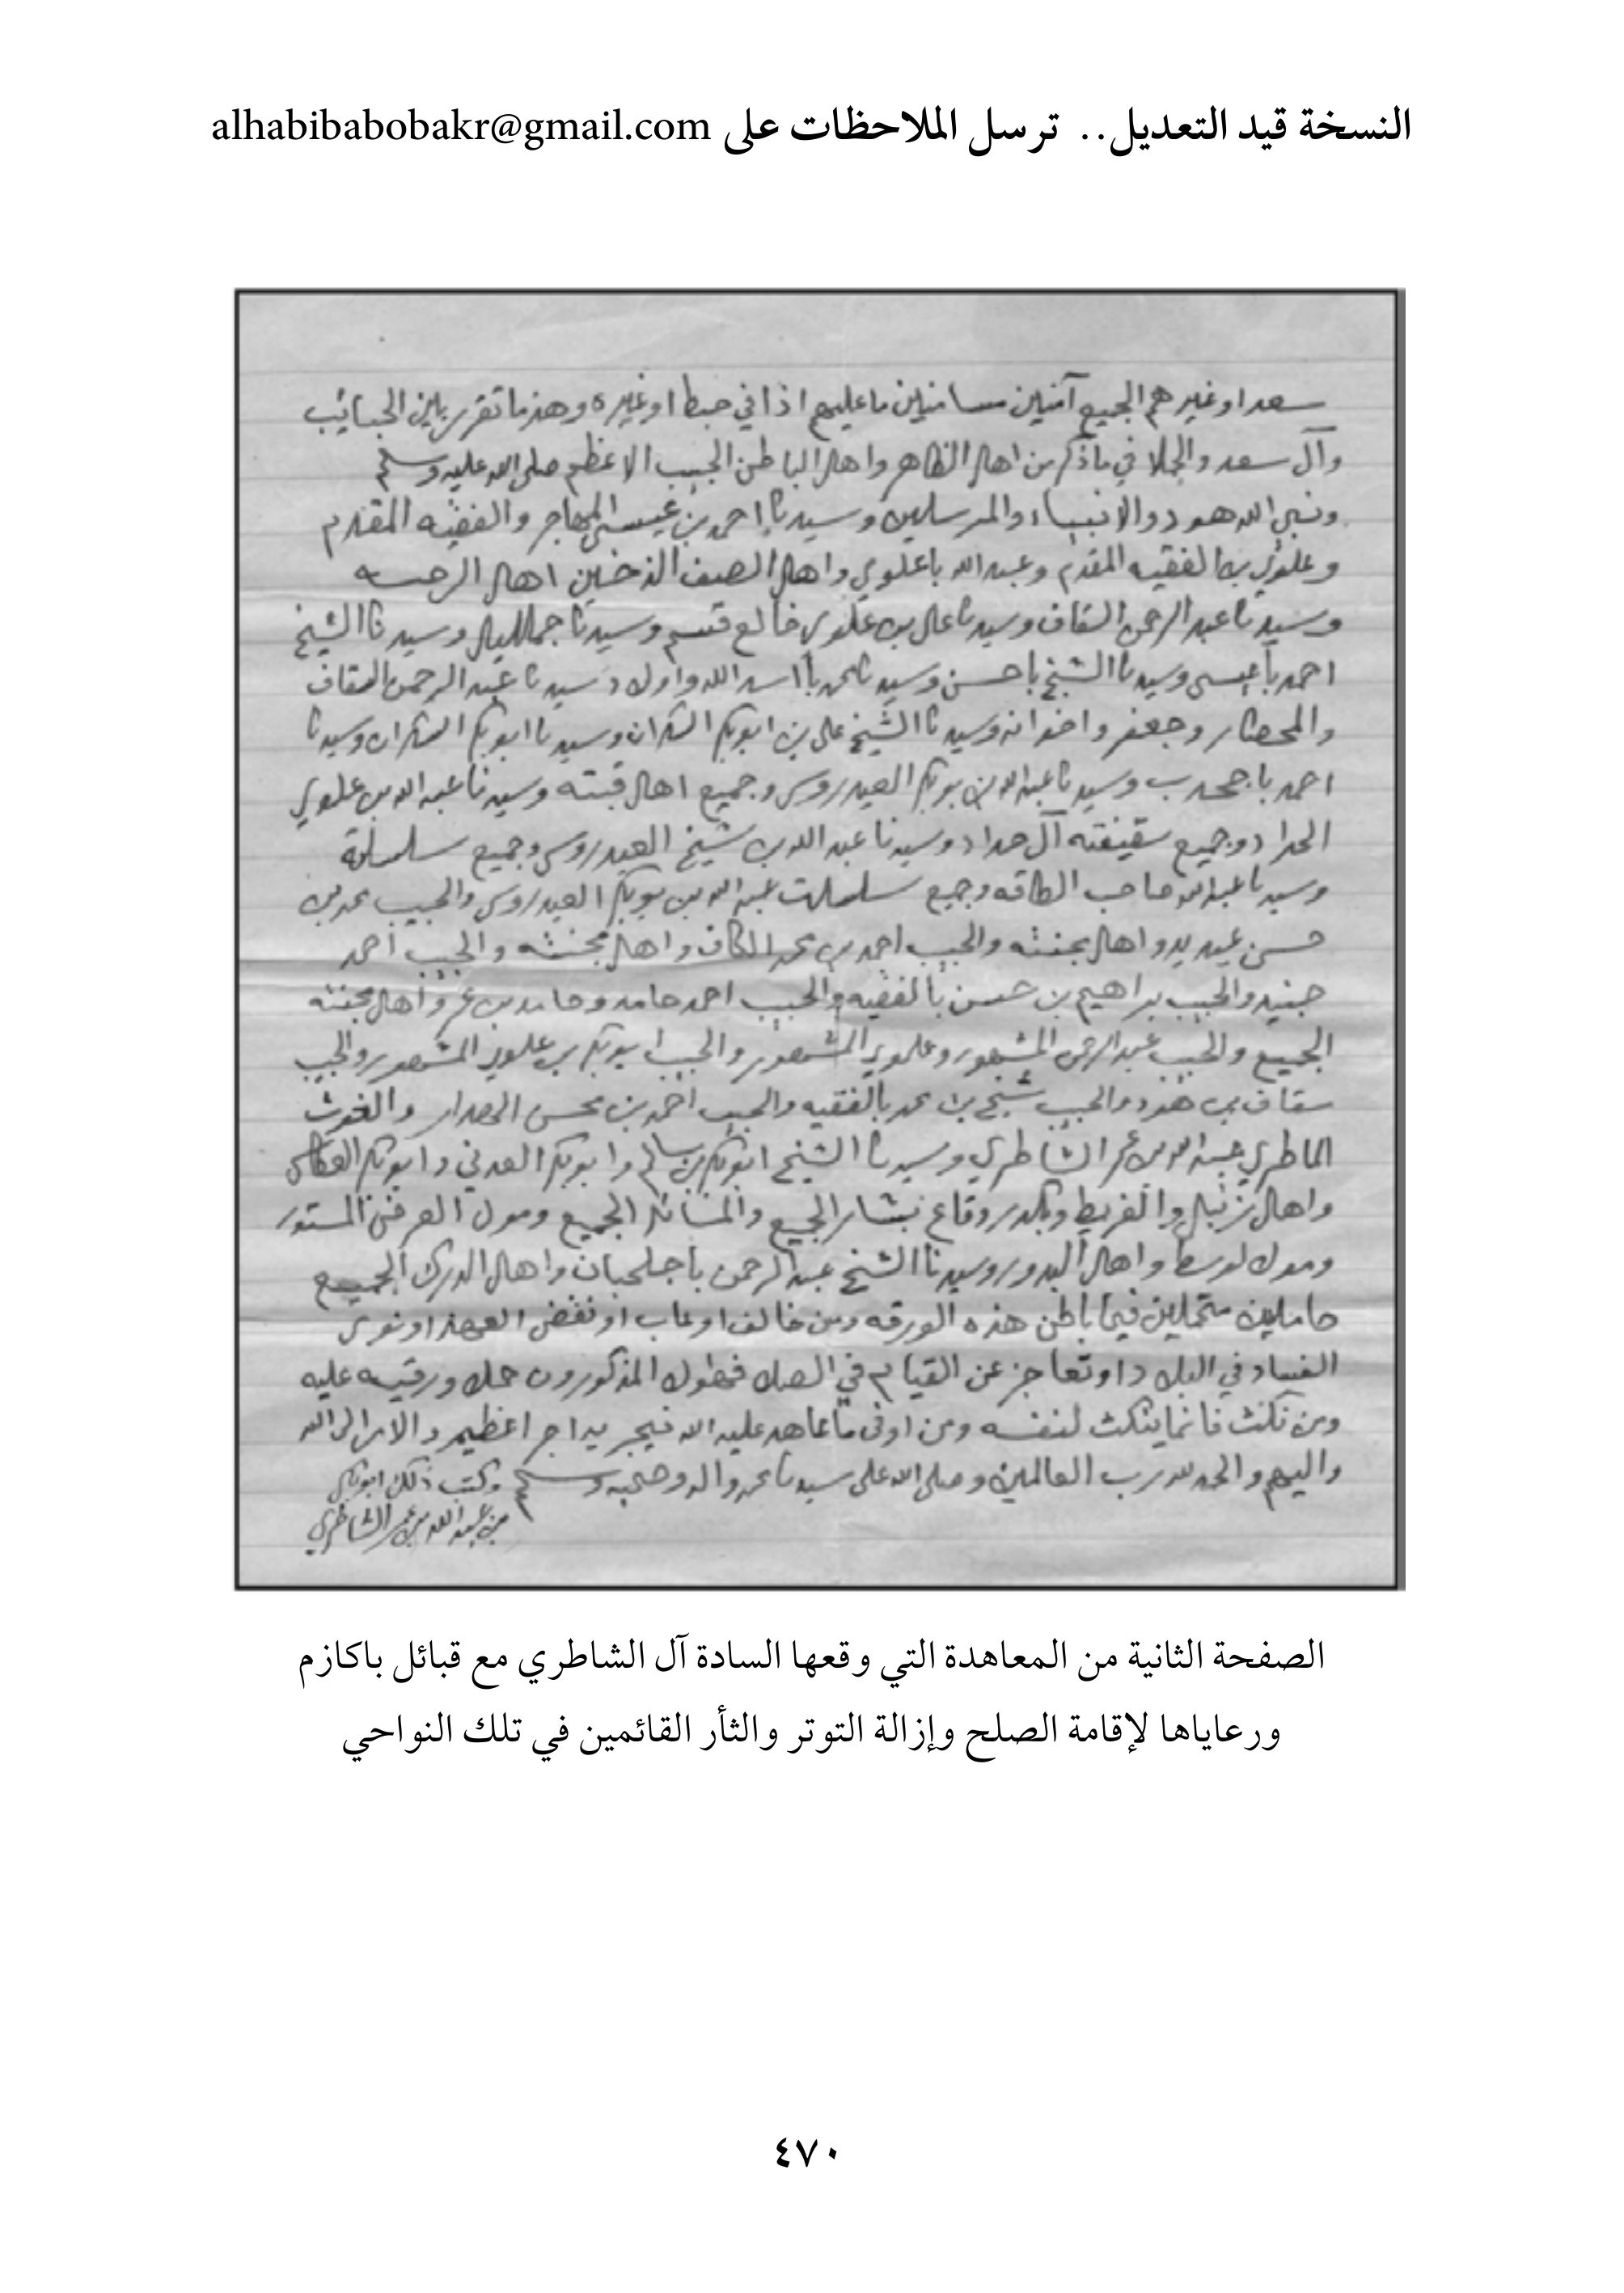 النسخة قيد التعديل.. ترسل الملاحظات على alhabibabobakr@gmail.com
سعد او غيرهم الجميع آمنين مسامنين ما عليهم اذا في حبط او غيره وهذ ما تقرر بين الحبائب
وآل سعد والجلا في ما ذكر من اهل الظاهر واهل الباطن الحبيب الاعظم صلى الله عليه وسلم
ونبي الله هود والانبياء والمرسلين وسيدنا احمد بن عيسى المهاجر والفقيه المقدم
وعلوي بن الفقيه المقدم وعبد الله باعلوي واهل الصيف اهل الرحمه
وسيدنا عبد الرحمن السقاف وسيدنا علي بن علوي خالع قسم وسيدنا جمل الليل وسيدنا الشيخ
احمد باعيسى وسيدنا الشيخ باحسن وسيدنا محمد بااسد الله واولاد سيدنا عبد الرحمن السقاف
والمحضار وجعفر واخوانه وسيدنا الشيخ علي بن ابوبكر السكران وسيدنا ابوبكر السكران وسيدنا
احمد باجحدب وسيدنا عبد الله بن بوبكر العيدروس وجميع اهل قبته وسيدنا عبد الله بن علوي
الحداد وجميع سقيفته آل حداد وسيدنا عبد الله بن شيخ العيدروس وجميع سلسلة
وسيدنا عبد الله صاحب الطاقه وجميع سلسلت عبد الله بن بوبكر العيدروس والحبيب محمد بن
حسن عيديد واهل بجنته والحبيب احمد بن محمد الكاف واهل بجنته والحبيب احمد
جنيد والحبيب براهيم بن حسن بالفقيه والحبيب احمد حامد وحامد بن عمر واهل بجنته
الجميع والحبيب عبد الرحمن المشهور وعلوي المشهور والحبيب ابوبكر بن علوي المشهور والحبيب
سقاف بن هود والحبيب شيخ بن محمد بالفقيه والحبيب احمد بن محسن الهدار والغوث
الماطري عبد الله بن عمر الشاطري وسيدنا الشيخ ابوبكر بن سالم وابوبكر العدني وابوبكر
واهل زنبل والفريط وبكدر وقاع بشار الجميع والمشائخ الجميع ومول العرض المستور
ومول لوسط واهل البدور وسيدنا الشيخ عبد الرحمن باجلحبان واهل الدرك الجميع
حاملين متحملين فيما باطن هذه الورقه ومن خالف او عاب او نقض العهد او نوى
الفساد في البلاد او تعاجز عن القيام في الصلح المذكورون حمله ورقيبه عليه
ومن نكث فانما ينكث لنفسه ومن اوفى ما عاهد عليه الله فيجر يه اجر اعظيم والامر الى الله
واليهم والحمد لله رب العالمين وصلى الله على سيدنا محمد واله وصحبه وسلم وكتب ذلك ابوبكر
بن عبد الله بن عمر الشاطري
الصفحة الثانية من المعاهدة التي وقعها السادة آل الشاطري مع قبائل باكازم
ورعاياها لإقامة الصلح وإزالة التوتر والثأر القائمين في تلك النواحي
٤٧٠